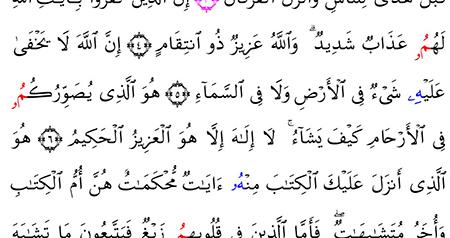 قَبْلُ هُدًى لِّلنَّاسِ وَأَنزَلَ ٱلْفُرْقَانَ ﴿٣﴾ إِنَّ ٱلَّذِينَ كَفَرُوا۟ بِـَٔايَـٰتِ ٱللَّهِ
لَهُمُۥ عَذَابٌ شَدِيدٌ ۗ وَٱللَّهُ عَزِيزٌ ذُو ٱنتِقَامٍ ﴿٤﴾ إِنَّ ٱللَّهَ لَا يَخْفَىٰ
عَلَيْهِۦ شَىْءٌ فِى ٱلْأَرْضِ وَلَا فِى ٱلسَّمَآءِ ﴿٥﴾ هُوَ ٱلَّذِى يُصَوِّرُكُمُۥ
فِى ٱلْأَرْحَامِ كَيْفَ يَشَآءُ ۚ لَا إِلَـٰهَ إِلَّا هُوَ ٱلْعَزِيزُ ٱلْحَكِيمُ ﴿٦﴾ هُوَ
ٱلَّذِى أَنزَلَ عَلَيْكَ ٱلْكِتَـٰبَ مِنْهُۥ ءَايَـٰتٌ مُّحْكَمَـٰتٌ هُنَّ أُمُّ ٱلْكِتَـٰبِ
وَأُخَرُ مُتَشَـٰبِهَـٰتٌ ۖ فَأَمَّا ٱلَّذِينَ فِى قُلُوبِهِمُۥ زَيْغٌ فَيَتَّبِعُونَ مَا تَشَـٰبَهَ